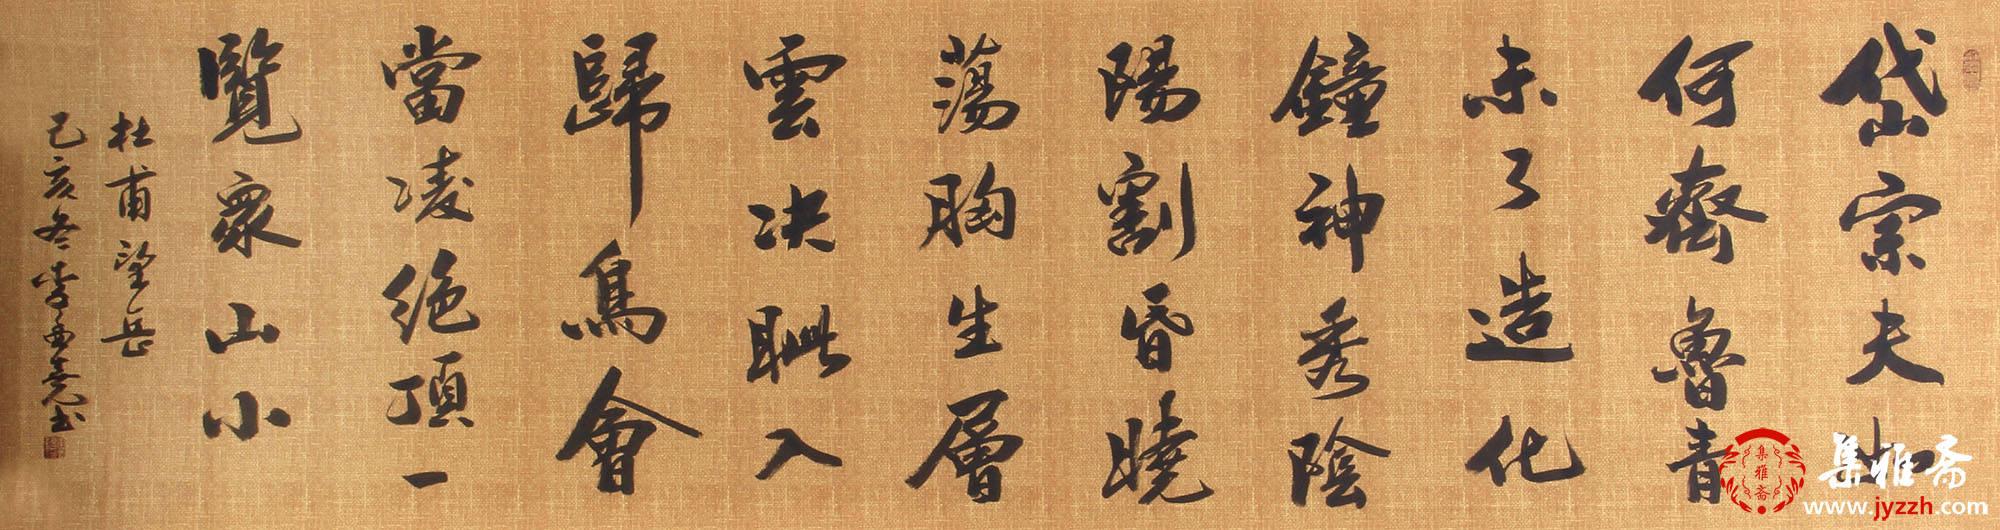 岱宗夫如
何齊魯青
未了造化
鐘神秀陰
陽割昏曉
蕩胸生層
雲决眦入
歸鳥會
當凌絶頂一
覽眾山小
杜甫望岳
己亥冬李书
集雅斋
集雅斋
www.jyzzh.com